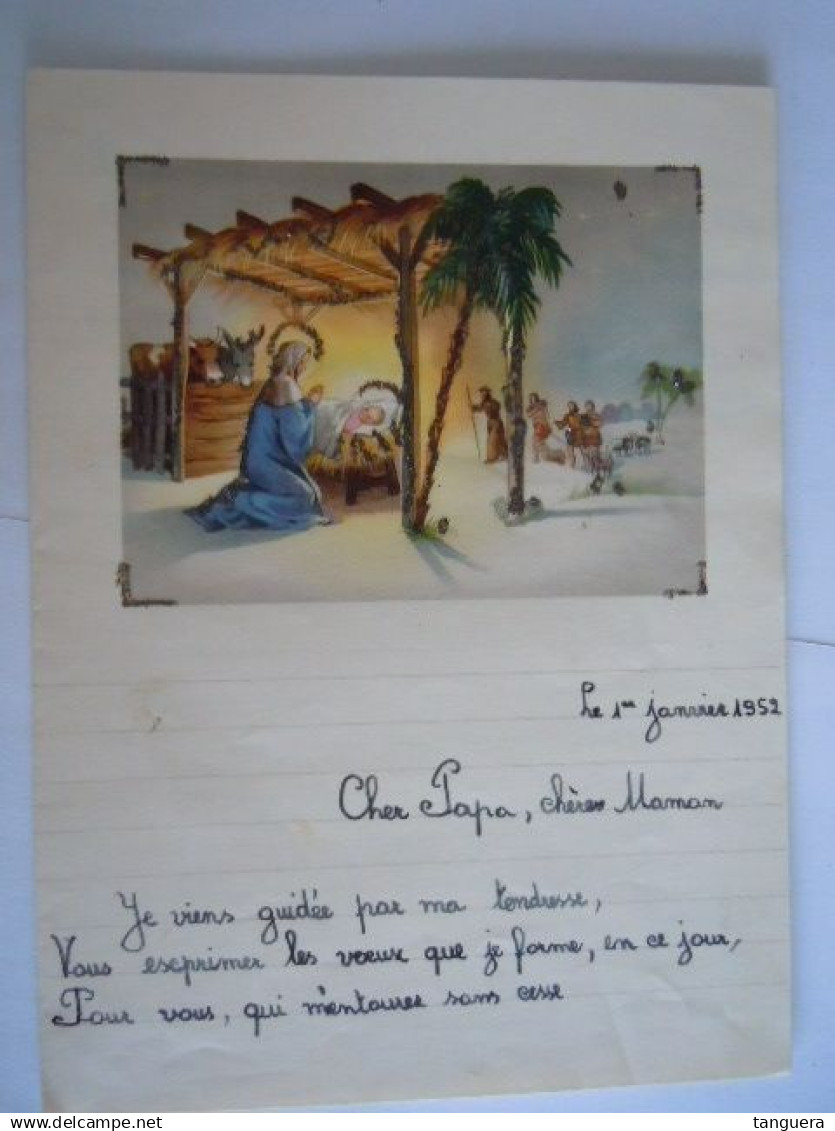 Le 1er janvier 1952
Cher Papa, chère Maman
Je viens guidée par ma tendresse,
Vous exprimer les vœux que je forme, en ce jour,
Pour vous, qui m'entourez sans cesse
delcampe.net
tanguera